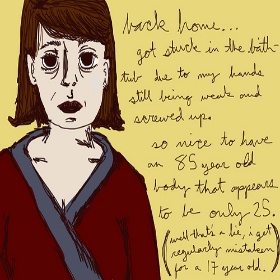 back home...
got stuck in the bath-
tub due to my hands
still being weak and
screwed up.
so nice to have
an 85 year old
body that appears
to be only 25.
(well that's a lie, i get
regularly mistaken
for a 17 year old.)